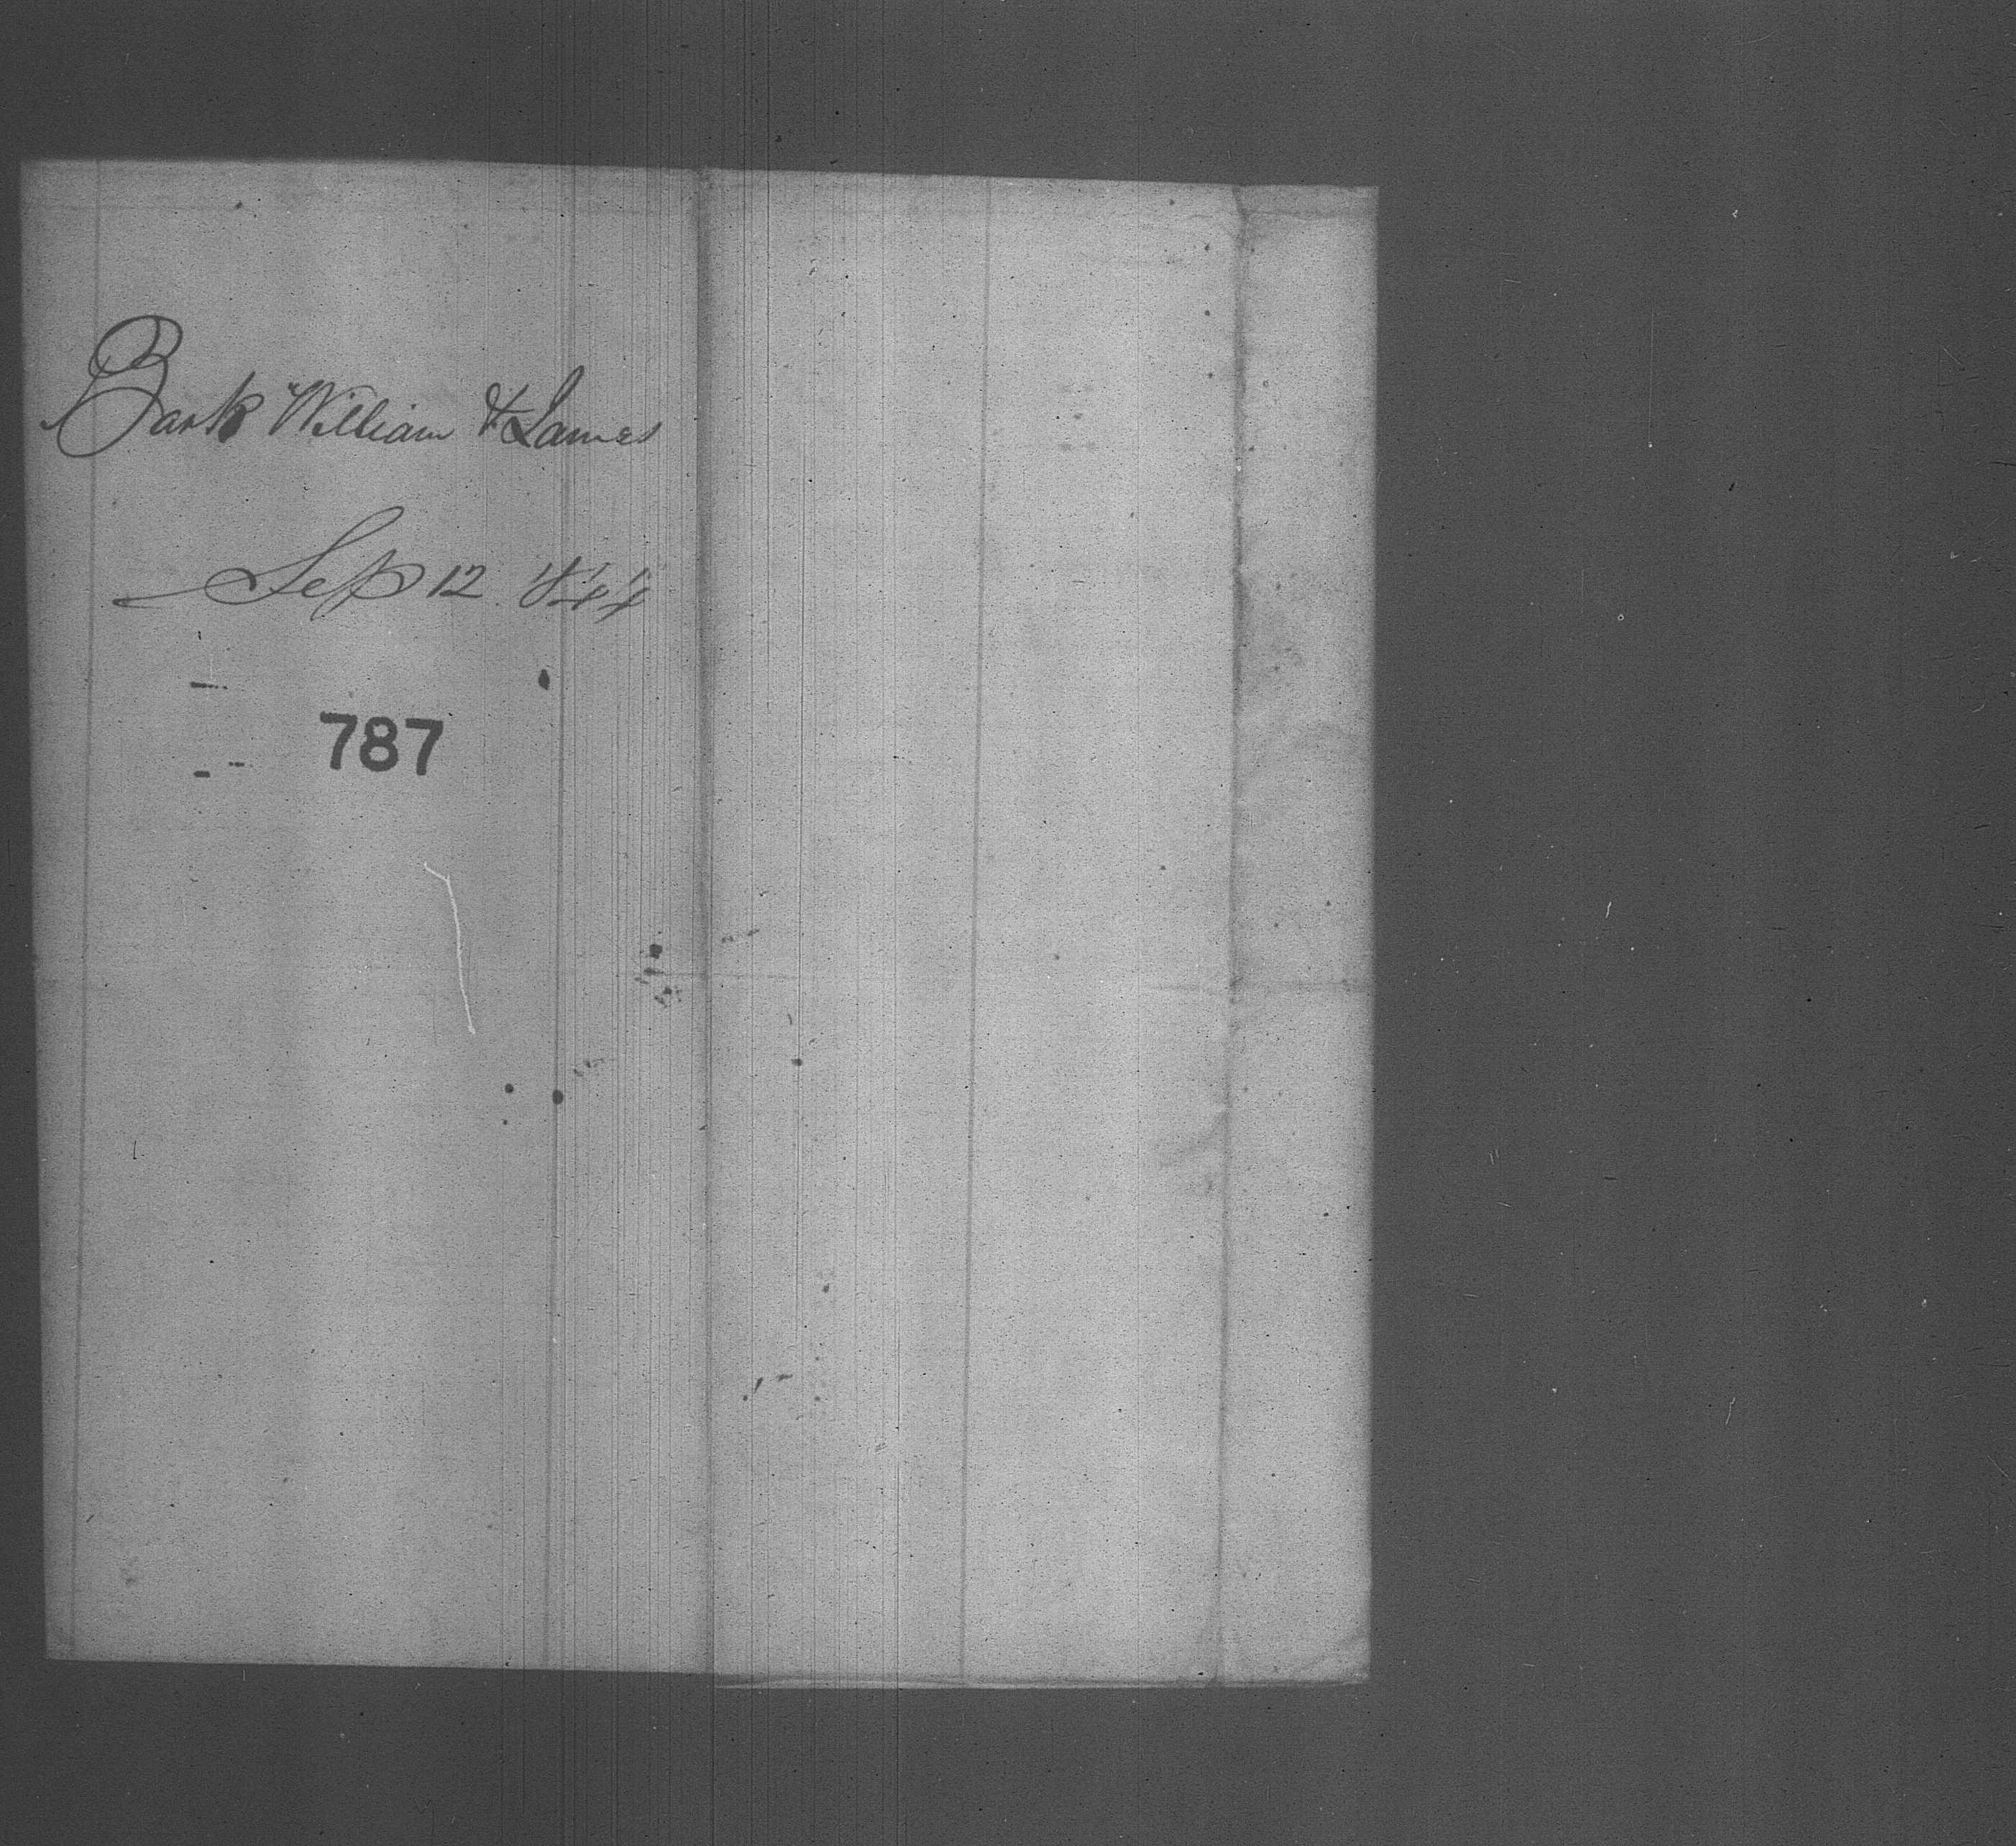 Bark William & James
Sep 12 1844
787